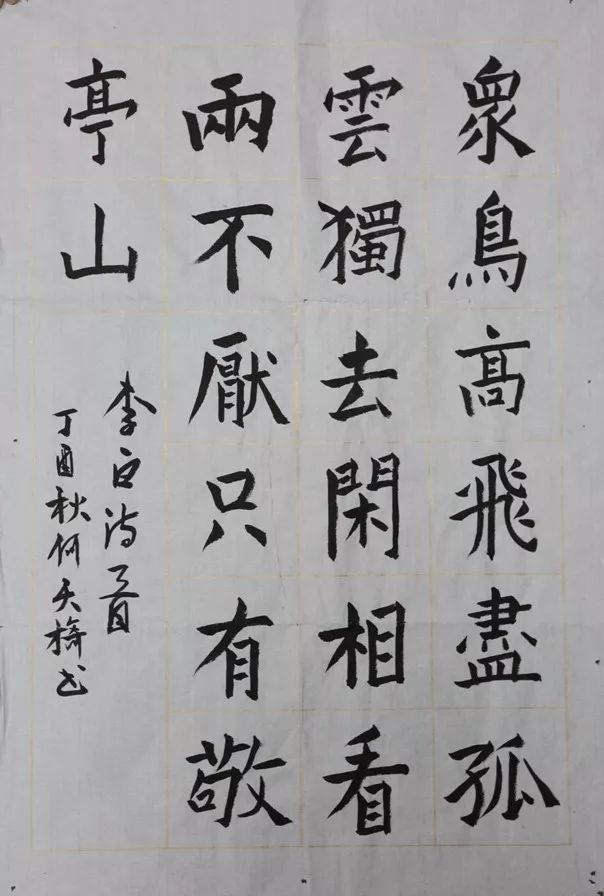 衆鳥高飛盡孤
雲獨去閑相看
兩不厭只有敬
亭山
李白詩一首
丁酉秋何天樁書